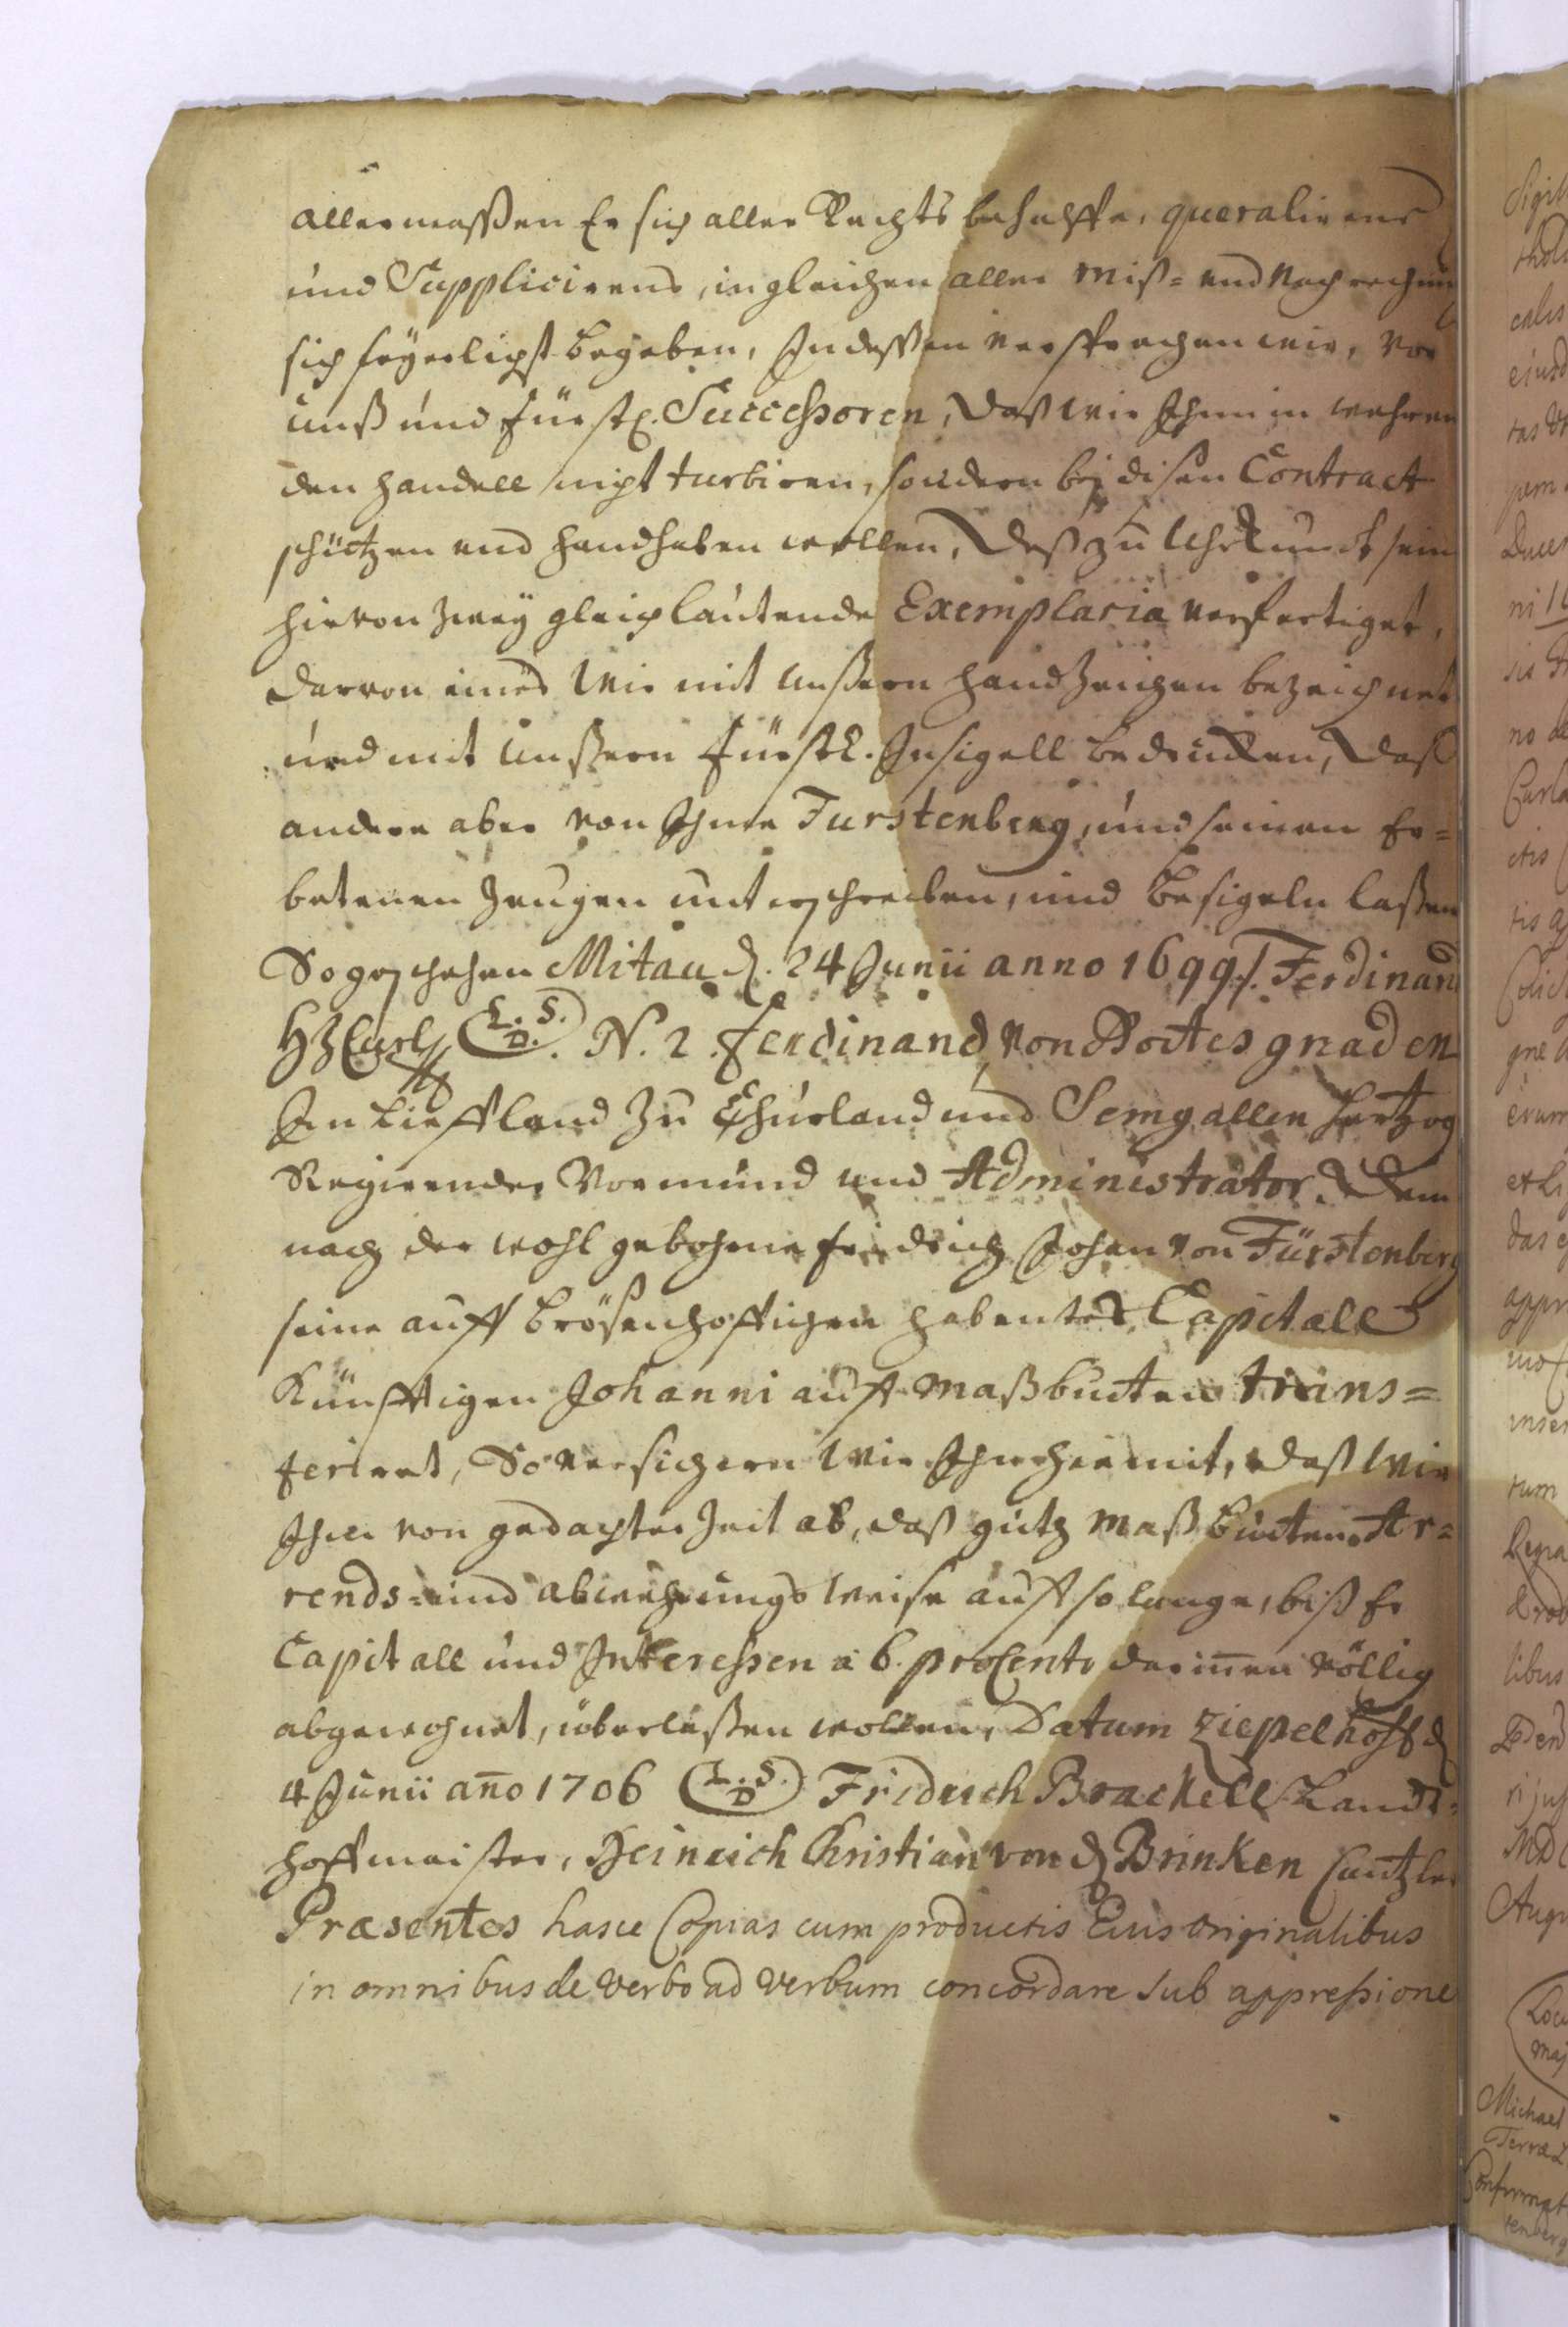 allermaßen Er sich aller Rechts behelffe, querulirens
und Supplicirens, ingleichen aller Miß= und Nachrechnung
sich feyerlichst begeben, Indeßen versprechen wir, vor
unß und Fürstl. Successoren, daß wir Ihm in wehren
den handell nicht turbiren, sondern bey disen Contract
schützen und handhaben wollen, Deß zu Uhrkundt sein
hievon zwey gleichlautende Exemplaria verfertiget,
darvon eines Wir mit Unßern handZeichen bezeichnet
und mit Unßern Fürstl. Insigell bedrucken, Daß
andere aber von Ihme Furstenberg, und seinen Er=
betenen Zeugen unterschreiben, und Besigeln laßen
So geschehen Mitau d. 24 Junii anno 1699 /. Ferdinand
HZCurl L.S. D. N. 2. Ferdinand von Gottes gnaden
In Liefland Zu Churland und Semgallen Hertzog
Regierender Vormund und Administrator. Dem
nach der wohl gebohrne Fridrich Johan von Fürstenberg
seine auff Brösenhoffschen habentes Capitall
Künfftigen Johanni auff Maßbutten trans=
feriret, So versichern Wir Ihm hiemit, daß Wir
Ihm von gedachter Zeit ab, daß guth Maßbutten Ar=
rends= und abwohnungs Weise auff so lange, biß Er
Capitall und Interessen a 6. proCento darinnen völlig
abgewohnet, überlaßen wollen, Datum Ziepelhoff d
4 Junii año 1706 L.S. D Fridrich Brackell Landt=
hoffmeister, Heinrich Christian von d Brinken Cantzler
Præsentes hasce Copias cum productis Eius originalibus
in omnibus de verbo ad verbum concordare sub appressione